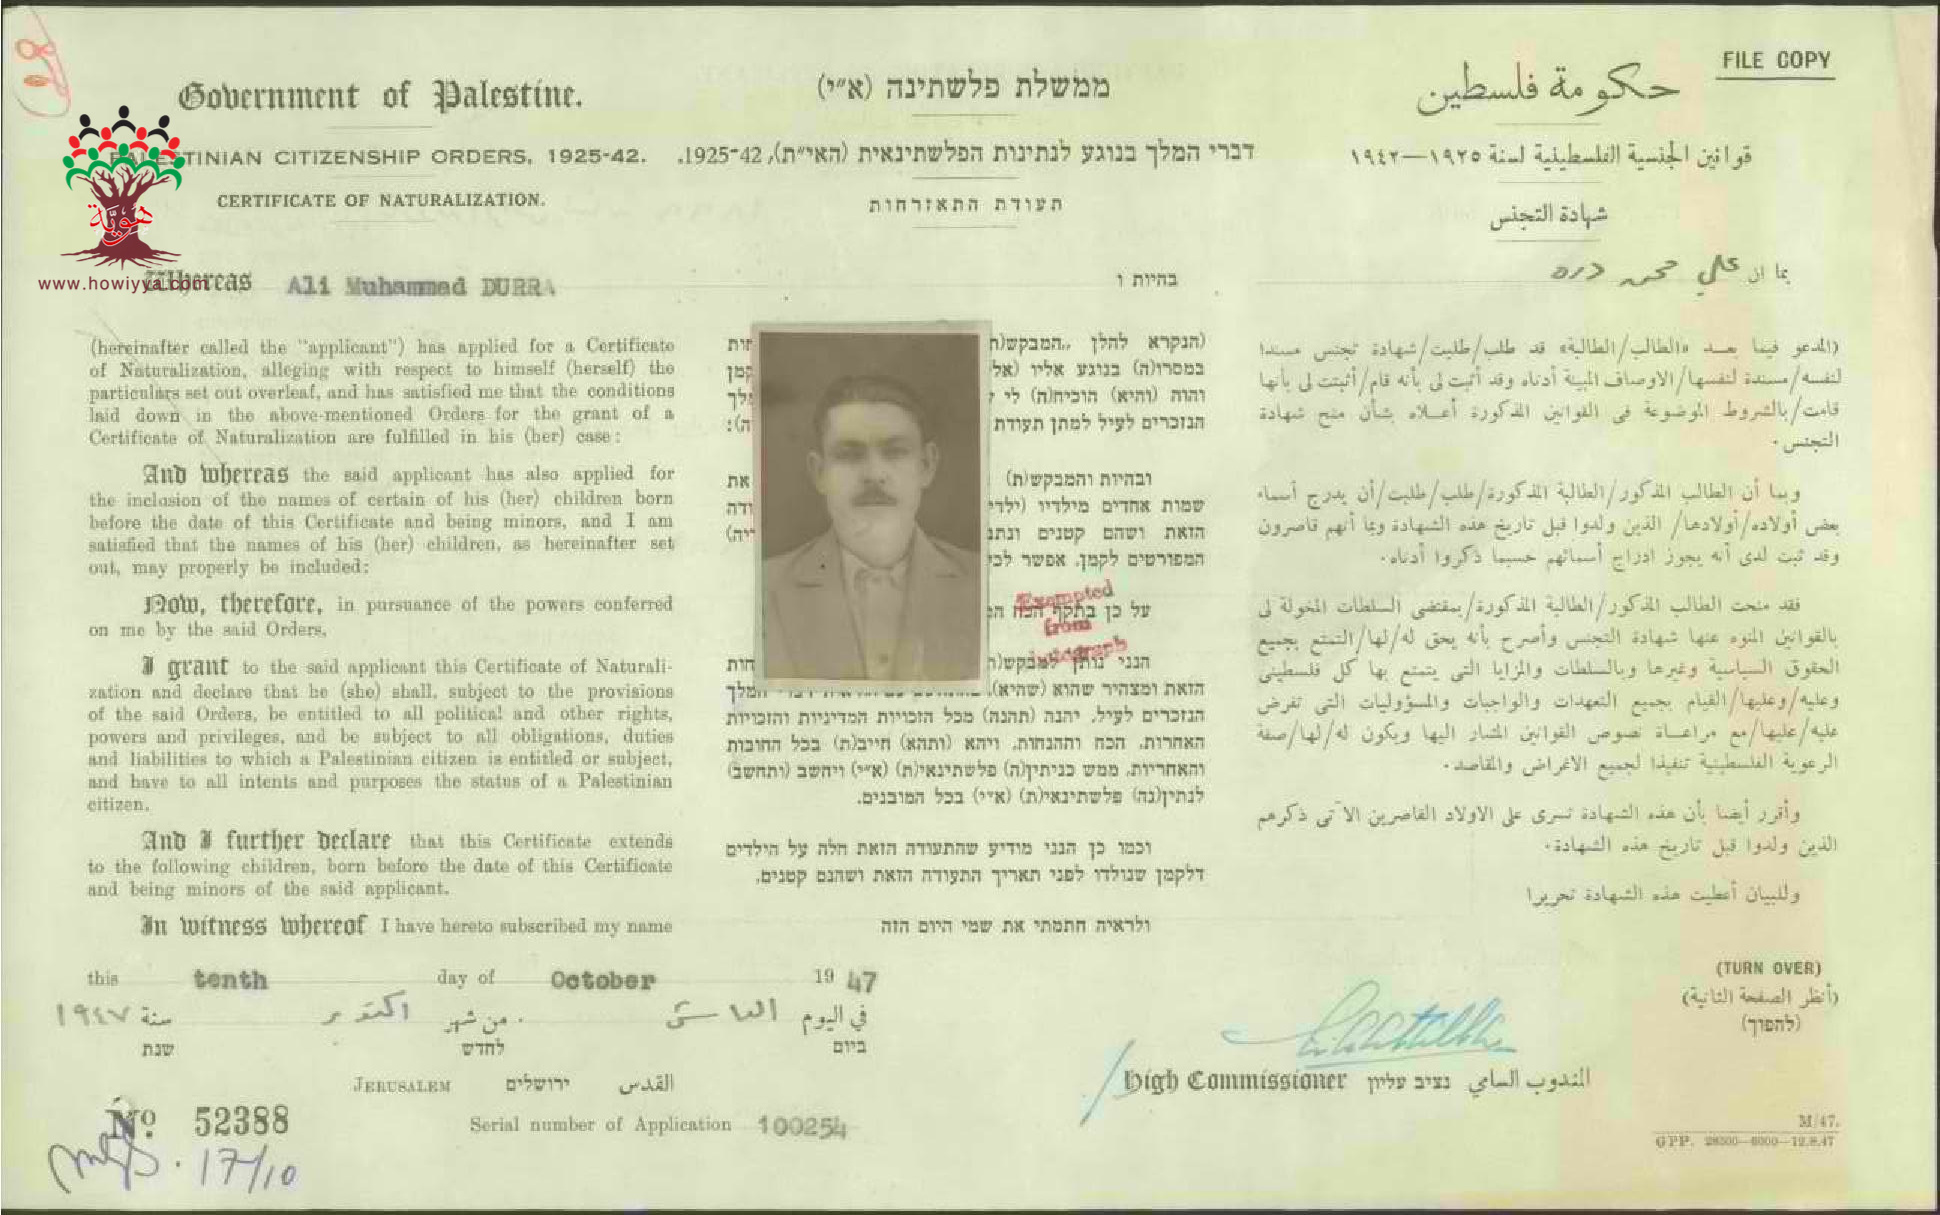 FILE COPY
Government of Palestine.
PALESTINIAN CITIZENSHIP ORDERS, 1925-42.
CERTIFICATE OF NATURALIZATION.
هوية
www.howiyya.com
Whereas Ali Muhammad DURRA
(hereinafter called the "applicant") has applied for a Certificate
of Naturalization, alleging with respect to himself (herself) the
particulars set out overleaf, and has satisfied me that the conditions
laid down in the above-mentioned Orders for the grant of a
Certificate of Naturalization are fulfilled in his (her) case:
And whereas the said applicant has also applied for
the inclusion of the names of certain of his (her) children born
before the date of this Certificate and being minors, and I am
satisfied that the names of his (her) children, as hereinafter set
out, may properly be included:
Now, therefore, in pursuance of the powers conferred
on me by the said Orders,
I grant to the said applicant this Certificate of Naturali-
zation and declare that he (she) shall, subject to the provisions
of the said Orders, be entitled to all political and other rights,
powers and privileges, and be subject to all obligations, duties
and liabilities to which a Palestinian citizen is entitled or subject,
and have to all intents and purposes the status of a Palestinian
citizen.
And I further declare that this Certificate extends
to the following children, born before the date of this Certificate
and being minors of the said applicant.
In witness whereof I have hereto subscribed my name
ממשלת פלשתינה (א״י)
דברי המלך בנוגע לנתינות הפלשתינאית (הא״ית), 1925-42.
תעודת התאזרחות
בהיות ו
(הנקרא להלן „המבקש(ת
במסרו(ה) בנוגע אליו (אל
והוה (והיא) הוכיח(ה) לי
הנזכרים לעיל למתן תעודת
ובהיות והמבקש(ת) את
שמות אחדים מילדיו (ילדי
הזאת ושהם קטנים ונתב
המפורטים לקמן, אפשר לכל
על כן בתקף הכח המ
Exempted
from
הנני נותן למבקש(ת
הזאת ומצהיר שהוא (שהיא), המלך
הנזכרים לעיל, יהנה (תהנה) מכל הזכויות המדיניות והזכויות
האחרות, הכח וההנחות, ויהא (ותהא) חייב(ת) בכל החובות
והאחריות, ממש כניתין(ה) פלשתינאי(ת) (א״י) ויחשב (ותחשב)
לנתין(נה) פלשתינאי(ת) (א״י) בכל המובנים.
וכמו כן הנני מודיע שהתעודה הזאת חלה על הילדים
דלקמן שנולדו לפני תאריך התעודה הזאת ושהנם קטנים.
ולראיה חתמתי את שמי היום הזה
حكومة فلسطين
قوانين الجنسية الفلسطينية لسنة ١٩٢٥—١٩٤٢
شهادة التجنس
بما ان علي محمد دره
(المدعو فيما بعد «الطالب/الطالبة» قد طلب/طلبت/شهادة تجنس مسندا
لنفسه/مسندة لنفسها/الاوصاف المبينة أدناه وقد أثبت لى بأنه قام/أثبتت لى بأنها
قامت/بالشروط الموضوعة فى القوانين المذكورة أعلاه بشأن منح شهادة
التجنس.
وبما أن الطالب المذكور/الطالبة المذكورة/طلب/طلبت/أن يدرج أسماء
بعض أولاده/أولادها/ الذين ولدوا قبل تاريخ هذه الشهادة وبما أنهم قاصرون
وقد ثبت لدى أنه يجوز ادراج أسمائهم حسبما ذكروا أدناه.
فقد منحت الطالب المذكور/الطالبة المذكورة/بمقتضى السلطات المخولة لى
بالقوانين المنوه عنها شهادة التجنس وأصرح بأنه يحق له/لها/التمتع بجميع
الحقوق السياسية وغيرها وبالسلطات والمزايا التى يتمتع بها كل فلسطينى
وعليه/وعليها/القيام بجميع التعهدات والواجبات والمسؤوليات التى تفرض
عليه/عليها/مع مراعاة نصوص القوانين المشار اليها ويكون له/لها/صفة
الرعوية الفلسطينية تنفيذا لجميع الاغراض والمقاصد.
وأقرر أيضا بأن هذه الشهادة تسرى على الاولاد القاصرين الآتى ذكرهم
الذين ولدوا قبل تاريخ هذه الشهادة.
وللبيان أعطيت هذه الشهادة تحريرا
this tenth day of October 19 47
في اليوم العاشر من شهر اكتوبر سنة ١٩٤٧
ביום לחדש שנת
(TURN OVER)
(أنظر الصفحة الثانية)
(להפוך)
JERUSALEM ירושלים القدس
High Commissioner נציב עליון المندوب السامي
No. 52388
Serial number of Application 100254
17/10
M/47.
GPP. 28300—6000—12.8.47